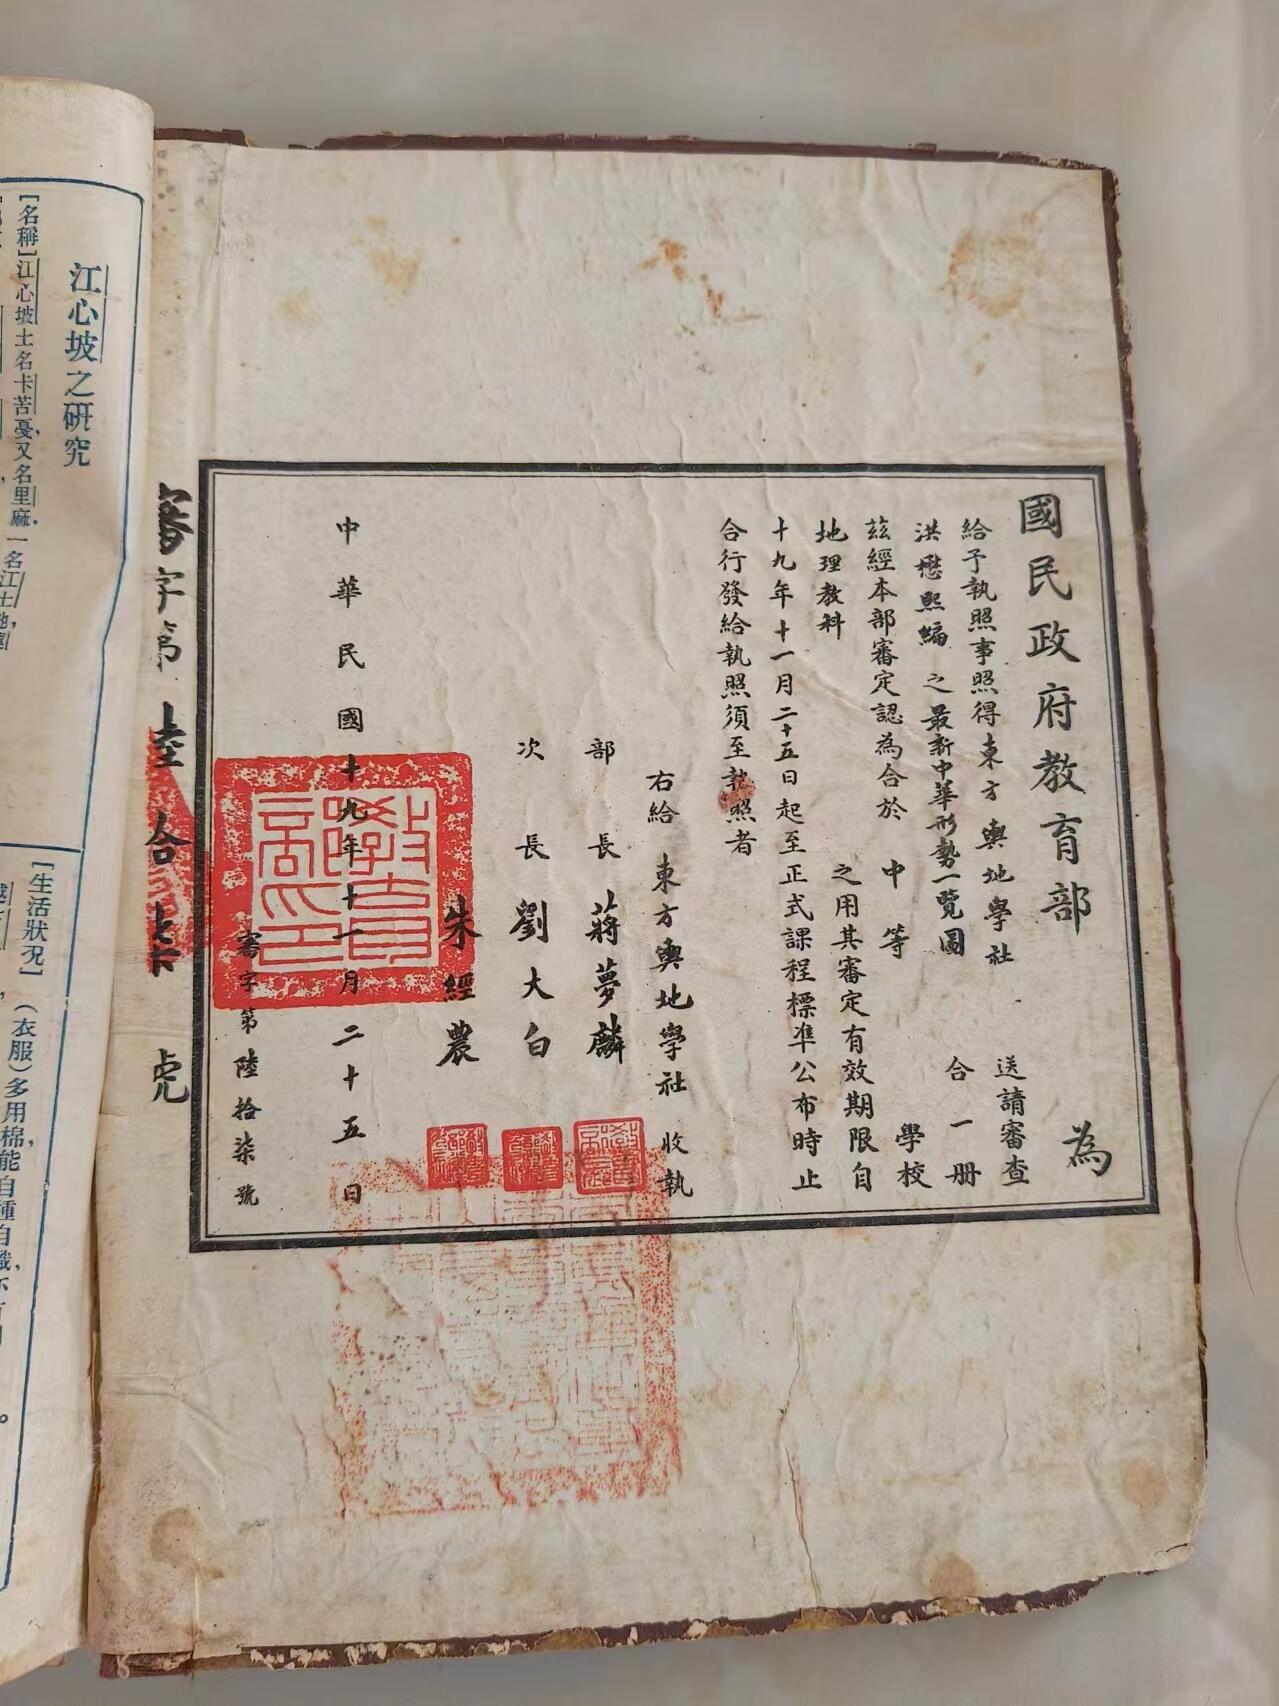 國民政府教育部 為
給予執照事照得東方輿地學社 送請審查
洪懋熙編 之最新中華形勢一覽圖 合一册
茲經本部審定認為合於 中等 學校
地理教科 之用其審定有效期限自
十九年十一月二十五日起至正式課程標準公布時止
合行發給執照須至執照者
右給 東方輿地學社 收執
部長 蔣夢麟
次長 劉大白
朱經農
中華民國十九年十一月二十五日
審字第陸拾柒號
審字第陸拾柒號
江心坡之研究
[名稱]江心坡土名卡苦戛又名里麻.一名江土地,
[生活狀況] (衣服)多用棉,能自種自織,